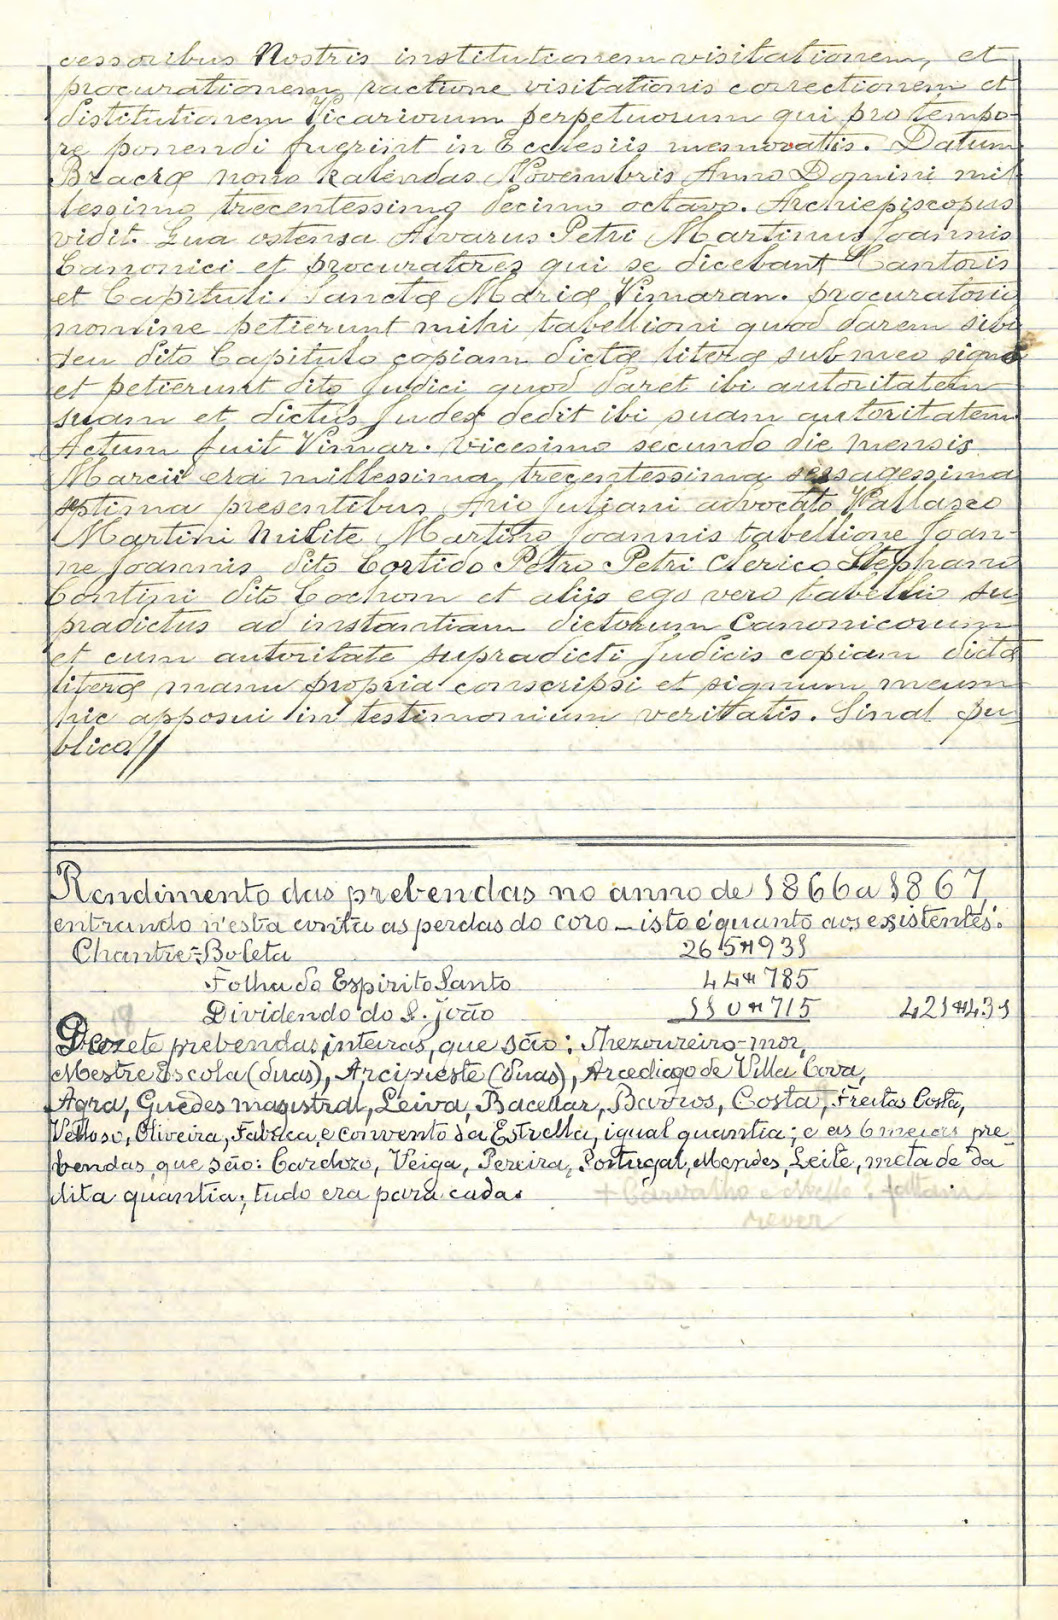 cessoribus Nostris institutionem visitationem, et
procurationem ractione visitationis correctionem et
distitutionem Vicariorum perpetuorum qui pro tempo-
re ponendi fuerint in Ecclesiis memoratis. Datum
Bracræ nono Kalendas Novembris Anno Domini mil
lessimo trecentessimo decimo octavo. Archiepiscopus
vidit. Qua ostensa Alvarus Petri Martinus Joannis
Canonici et procuratores qui se dicebant Cantoris
et Capituli Sanctæ Mariæ Vimaran. procuratorio
nomine petierunt mihi tabellioni quod darem sibi
seu dito Capitulo copiam dictæ literæ sub meo signo
et petierunt dito Judici quod daret ibi autoritatem
suam et dictus Judex dedit ibi suam autoritatem
Actum fuit Vimar. vicesimo secundo die mensis
Marcii era millessima trecentessima sexagessima
septima presentibus Ario Juliani advocato Vallasco
Martini Milite Martino Joannis tabellione Joan-
ne Joannis dito Cortido Petro Petri Clerico Stephano
Contini dito Cochom et aliis ego vero tabellio su
pradictus ad instantiam dictorum Canonicorum
et cum autoritate supradicti Judicis copiam dictæ
literæ manu propria conscripsi et signum meum
hic apposui in testimonium veritatis. Sinal pu
blico//
Rendimento das prebendas no anno de 1866 a 1867,
entrando n'esta conta as perdas do coro _ isto é quanto aos existentes:
Chantre=Boleta 265#931
Folha do Espirito Santo 44#785
Dividendo do S. João 110#715 421#431
Dezesete prebendas inteiras, que são: Thezoureiro-mor,
Mestre Escola (duas), Arcipreste (duas), Arcediago de Villa Cova,
Agra, Guedes magistral, Leiva, Bacellar, Barros, Costa, Freitas Costa,
Velloso, Oliveira, Fabrica, e convento da Estrella, igual quantia; e as 6 meias pre_
bendas, que são: Cardozo, Veiga, Pereira, Portugal, Mendes, Leite, metade da
dita quantia; tudo era para cada.
+ Carvalho e Mello? faltam
rever